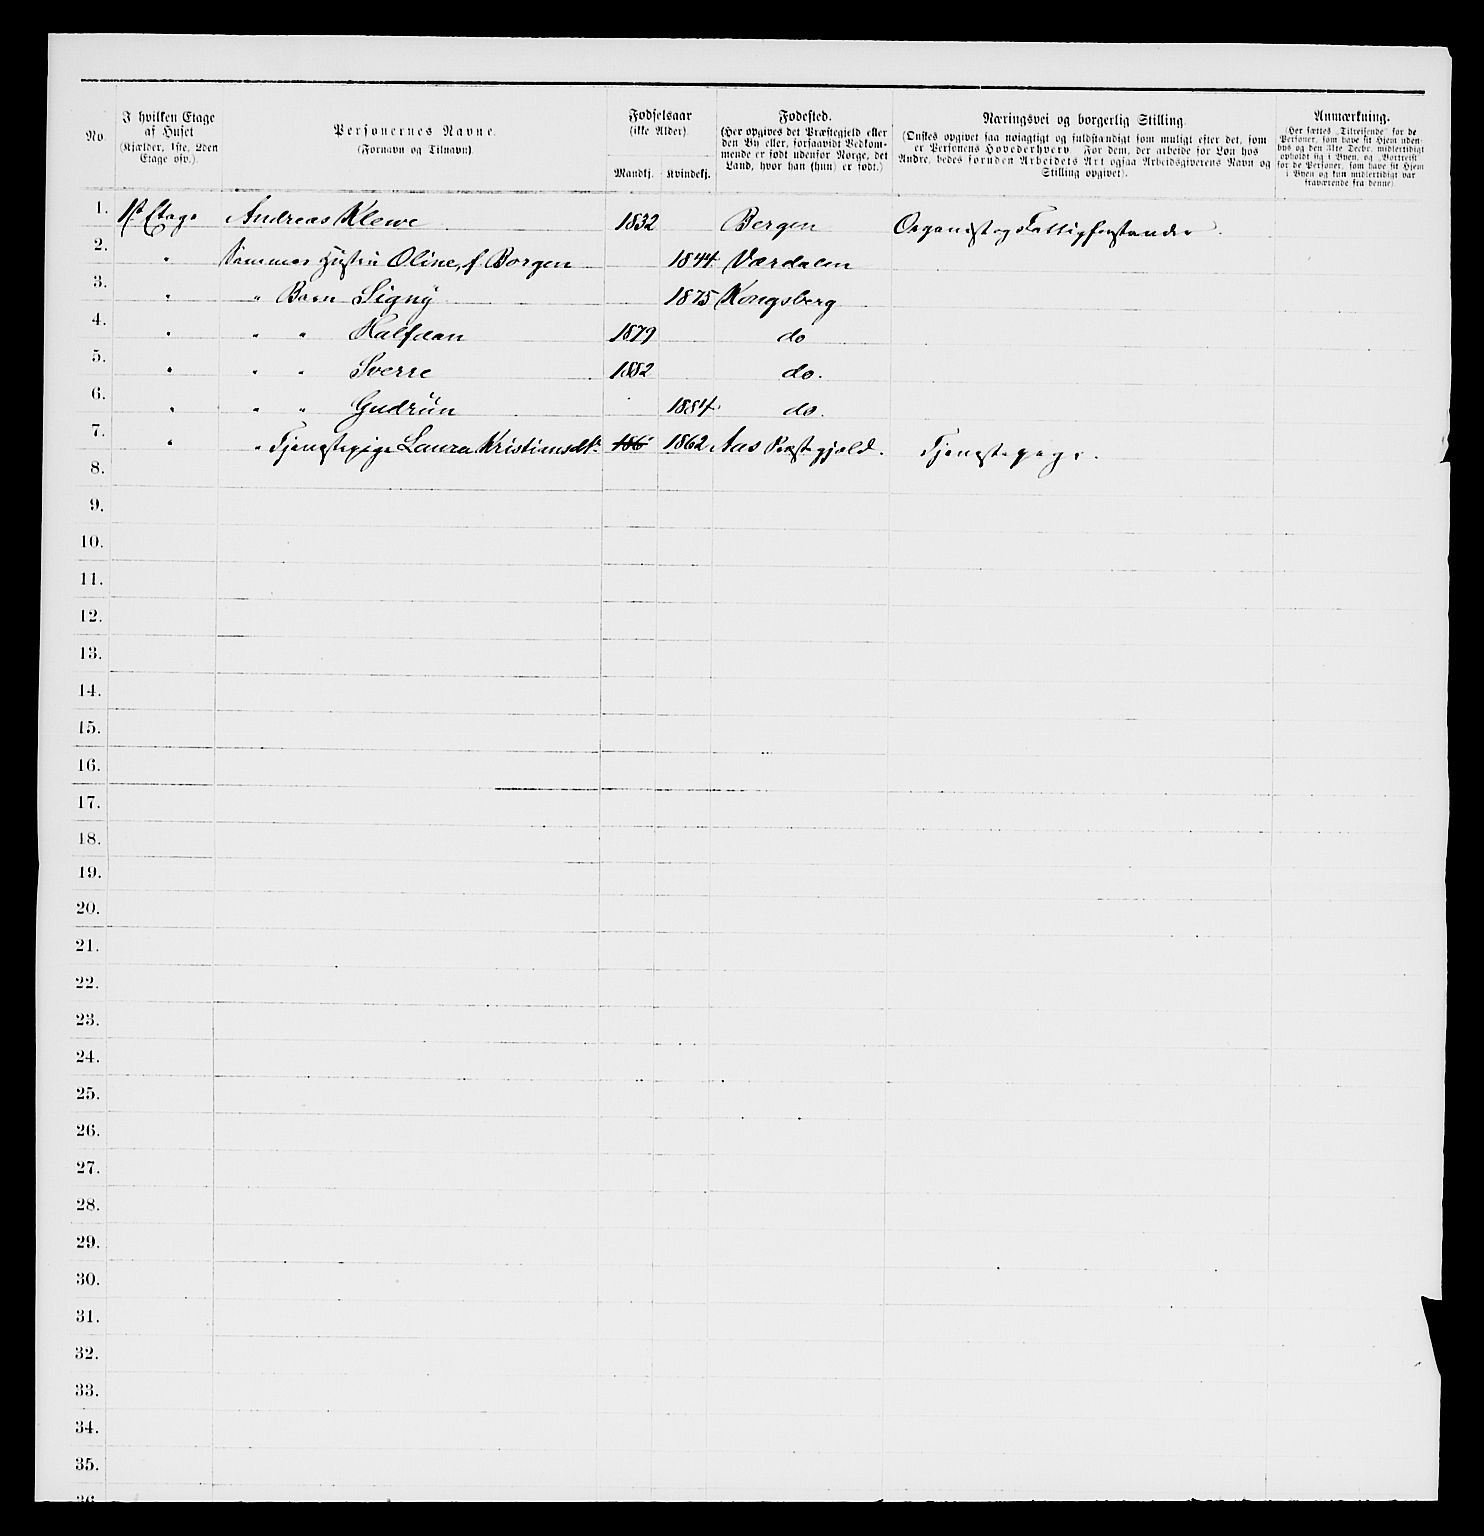 No. I hvilken Etage af Huset (Kjælder, 1ste, 2den Etage osv.). Personernes Navne. (Fornavn og Tilnavn). Fødselsaar (ikke Alder). Mandkj. Kvindekj. Fødested. (Her opgives det Præstegjeld eller den By eller, forsaavidt Vedkommende er født udenfor Norge, det Land, hvor han (hun) er født.) Næringsvei og borgerlig Stilling. (Ønskes opgivet saa nøiagtigt og fuldstændigt som muligt efter det, som er Personens Hovederhverv. For dem, der arbeide for Løn hos Andre, bedes foruden Arbeidets Art ogsaa Arbeidsgiverens Navn og Stilling opgivet). Anmærkning. (Her sættes „Tilreisende" for de Personer, som have sit Hjem udenbys og den 31te Decbr. midlertidigt opholdt sig i Byen, og „Bortreist" for de Personer, som have sit Hjem i Byen og kun midlertidigt var fraværende fra denne).
1. 1ste Etage Andreas Klewe 1832 Bergen Organist og Fattigforstander.
2. " Sammes Hustru Oline, f. Borgen 1844 Værdalen
3. " " Barn Signy 1875 Kongsberg
4. " " " Halfdan 1879 do
5. " " " Sverre 1882 do.
6. " " " Gudrŭn 1884 do.
7. " " Tjenestepige Laura Kristiansdt. 186 1862 Aas Præstegjæld. Tjenestepige.
8.
9.
10.
11.
12.
13.
14.
15.
16.
17.
18.
19.
20.
21.
22.
23.
24.
25.
26.
27.
28.
29.
30.
31.
32.
33.
34.
35.
36.